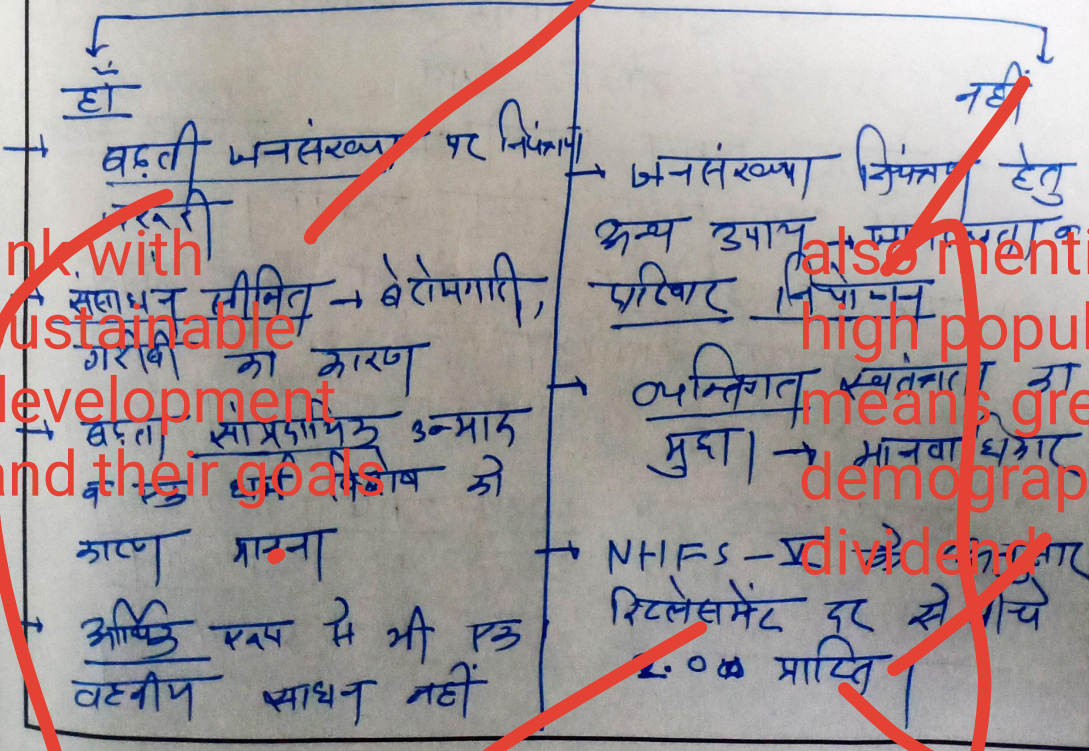 हाँ
→ बढ़ती जनसंख्या पर नियंत्रण
जरूरी
→ संसाधन सीमित → बेरोजगारी,
गरीबी का कारण
→ बढ़ता सांप्रदायिक उन्माद
व एक धर्म विशेष को
कारण मानना
→ आर्थिक रूप से भी एक
वहनीय साधन नहीं
नहीं
→ जनसंख्या नियंत्रण हेतु
अन्य उपाय →
परिवार नियोजन
→ व्यक्तिगत स्वतंत्रता का
मुद्दा। → मानवाधिकार
→ NHFS-V के अनुसार
रिप्लेसमेंट दर से नीचे
2.0 प्राप्ति।
nk with
ustainable
development
and their goals
also menti
high popul
means gre
demograp
dividend